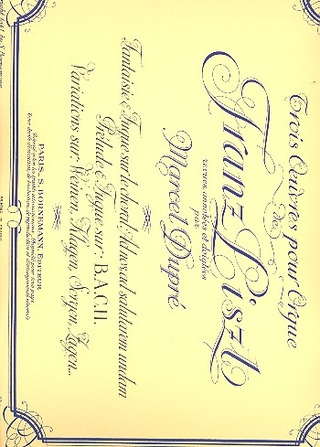 Trois Oeuvres pour Orgue
de
Franz Liszt
revues, annotées et doigtées
par
Marcel Dupré
Fantaisie & Fugue sur le choral: Ad nos, ad salutarem undam
Prélude & Fugue sur B.A.C.H.
Variations sur Weinen, Klagen, Sorgen, Zagen...
PARIS, S. BORNEMANN, EDITEUR